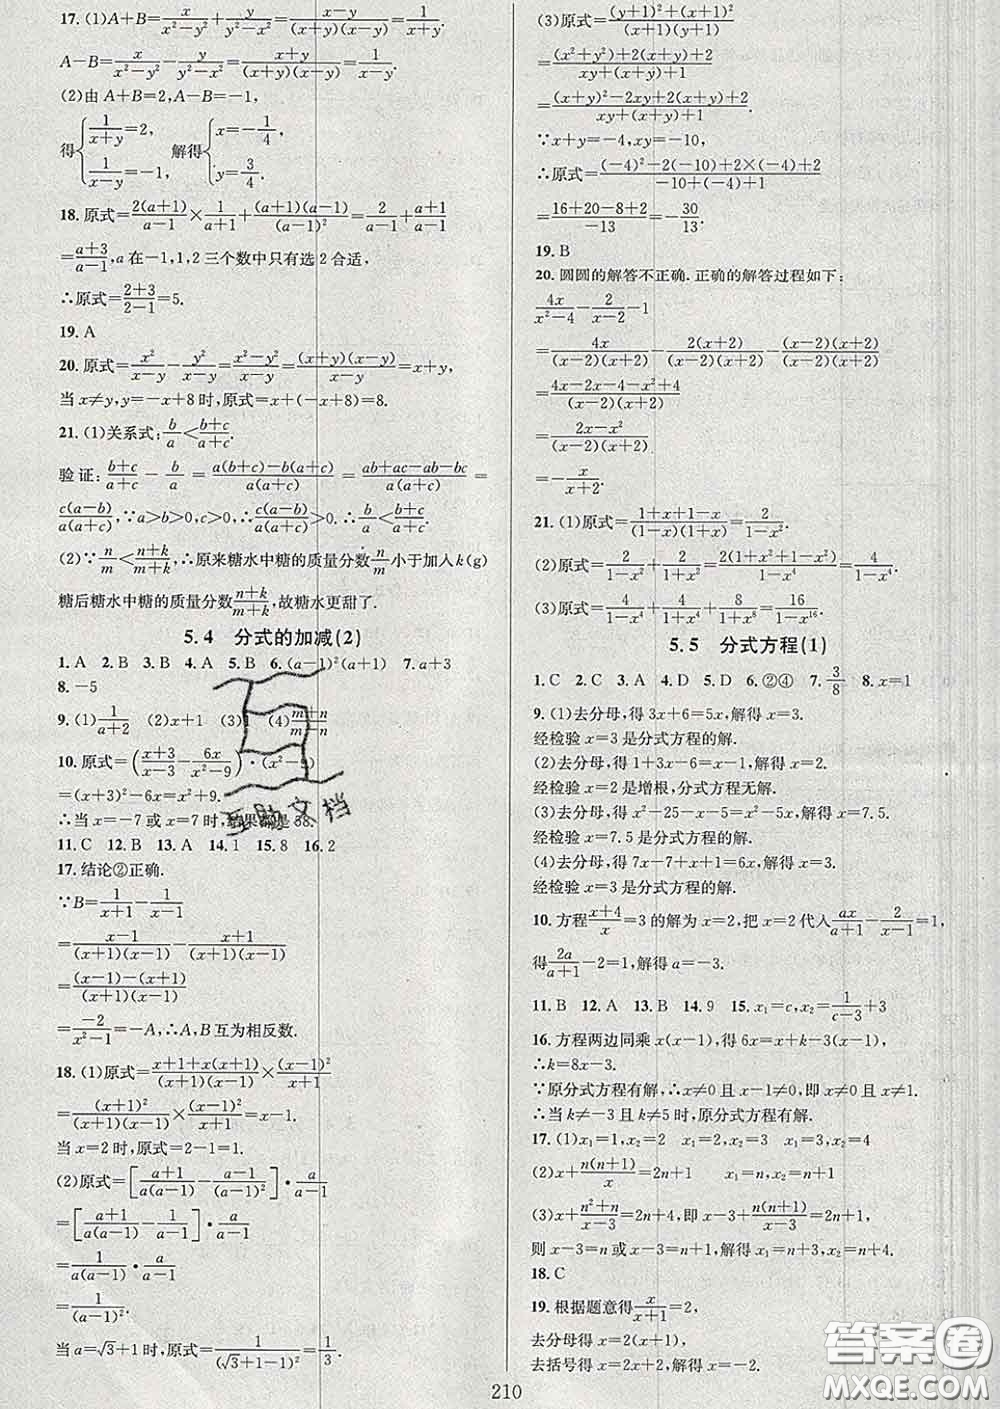 17. (1)A+B=x/(x²-y²)+y/(y²-x²)=(x-y)/((x+y)(x-y))=1/(x+y).
A-B=x/(x²-y²)-y/(y²-x²)=(x+y)/((x+y)(x-y))=1/(x-y).
(2)由 A+B=2,A-B=-1,
得{1/(x+y)=2, 1/(x-y)=-1, 解得{x=-1/4, y=3/4.
18. 原式=2(a+1)/(a-1)×1/(a+1)+(a+1)(a-1)/(a-1)²=2/(a-1)+(a+1)/(a-1)
=(a+3)/(a-1),a 在-1,1,2 三个数中只有选 2 合适,
∴原式=(2+3)/(2-1)=5.
19. A
20. 原式=x²/(x-y)-y²/(x-y)=(x²-y²)/(x-y)=(x+y)(x-y)/(x-y)=x+y,
当 x≠y,y=-x+8 时,原式=x+(-x+8)=8.
21. (1)关系式:b/a<(b+c)/(a+c).
验证:(b+c)/(a+c)-b/a=(a(b+c)-b(a+c))/(a(a+c))=(ab+ac-ab-bc)/(a(a+c))=
c(a-b)/(a(a+c)),∵a>b>0,c>0,∴c(a-b)/(a(a+c))>0.∴b/a<(b+c)/(a+c).
(2)∵n/m<(n+k)/(m+k),∴原来糖水中糖的质量分数n/m小于加入k(g)
糖后糖水中糖的质量分数(n+k)/(m+k),故糖水更甜了.
5.4 分式的加减(2)
1. A 2. B 3. B 4. A 5. B 6. (a-1)²(a+1) 7. a+3
8. -5
9. (1)1/(a+2) (2)x+1 (3)1 (4)(m+n)/(m-n)
10. 原式=((x+3)/(x-3)-6x/(x²-9))·(x²-9)
=(x+3)²-6x=x²+9.
∴当 x=-7 或 x=7 时,结果都是58.
11. C 12. B 13. A 14. 1 15. 8 16. 2
17. 结论②正确.
∵B=1/(x+1)-1/(x-1)
=(x-1)/((x+1)(x-1))-(x+1)/((x+1)(x-1))
=((x-1)-(x+1))/((x+1)(x-1))
=-2/(x²-1)=-A,∴A,B 互为相反数.
18. (1)原式=(x+1+x(x+1))/((x+1)(x-1))×(x-1)²/(x+1)
=(x+1)²/((x+1)(x-1))×(x-1)²/(x+1)=x-1.
当 x=2 时,原式=2-1=1.
(2)原式=[(a+1)/(a(a-1))-(a+1)/(a-1)²]·a/(a-1)
=[(a+1)/(a(a-1))-1/(a-1)]·a/(a-1)
=1/(a(a-1))·a/(a-1)
=1/(a-1)².
当 a=√3+1 时,原式=1/(√3+1-1)²=1/3.
(3)原式=((y+1)²+(x+1)²)/((x+1)(y+1))
=((x²+y²)+2(x+y)+2)/(xy+(x+y)+1)
=((x+y)²-2xy+2(x+y)+2)/(xy+(x+y)+1)
∵x+y=-4,xy=-10,
∴原式=((-4)²-2(-10)+2×(-4)+2)/(-10+(-4)+1)
=(16+20-8+2)/(-13)=-30/13.
19. B
20. 圆圆的解答不正确. 正确的解答过程如下:
4x/(x²-4)-2/(x-2)-1
=4x/((x-2)(x+2))-2(x+2)/((x-2)(x+2))-(x-2)(x+2)/((x-2)(x+2))
=(4x-2x-4-x²+4)/((x-2)(x+2))
=(2x-x²)/((x-2)(x+2))
=-x/(x+2).
21. (1)原式=(1+x+1-x)/((1-x)(1+x))=2/(1-x²).
(2)原式=2/(1-x²)+2/(1+x²)=2(1+x²+1-x²)/(1-x⁴)=4/(1-x⁴).
(3)原式=4/(1-x⁴)+4/(1+x⁴)+8/(1+x⁸)=8/(1-x⁸)+8/(1+x⁸)=16/(1-x¹⁶).
5.5 分式方程(1)
1. C 2. C 3. A 4. D 5. D 6. ②④ 7. -3/8 8. x=1
9. (1)去分母,得 3x+6=5x,解得 x=3.
经检验 x=3 是分式方程的解.
(2)去分母,得 1+3x-6=x-1,解得 x=2.
经检验 x=2 是增根,分式方程无解.
(3)去分母,得 x²-25-x-5=x²-5x,解得 x=7.5.
经检验 x=7.5 是分式方程的解.
(4)去分母,得 7x-7+x+1=6x,解得 x=3.
经检验 x=3 是分式方程的解.
10. 方程(x+4)/x=3 的解为 x=2,把 x=2 代入ax/(a+1)-2/(x-1)=1,
得2a/(a+1)-2=1,解得 a=-3.
11. B 12. A 13. B 14. 9 15. x₁=c,x₂=1/(c-3)+3
16. 方程两边同乘 x(x-1),得 6x=x+k-3(x-1),
∴k=8x-3.
∵原分式方程有解,∴x≠0 且 x-1≠0,即 x≠0 且 x≠1.
∴当 k≠-3 且 k≠5 时,原分式方程有解.
17. (1)x₁=1,x₂=2 x₁=2,x₂=3 x₁=3,x₂=4
(2)x+n(n+1)/x=2n+1 x₁=n,x₂=n+1
(3)x+(n²+n)/(x-3)=2n+4,即 x-3+n(n+1)/(x-3)=2n+1,
则 x-3=n 或 x-3=n+1,解得 x₁=n+3,x₂=n+4.
18. C
19. 根据题意得x/(x+1)=2,
去分母得 x=2(x+1),
去括号得 x=2x+2,解得 x=-2.
210
互助文档
答案圈
MXQE.COM